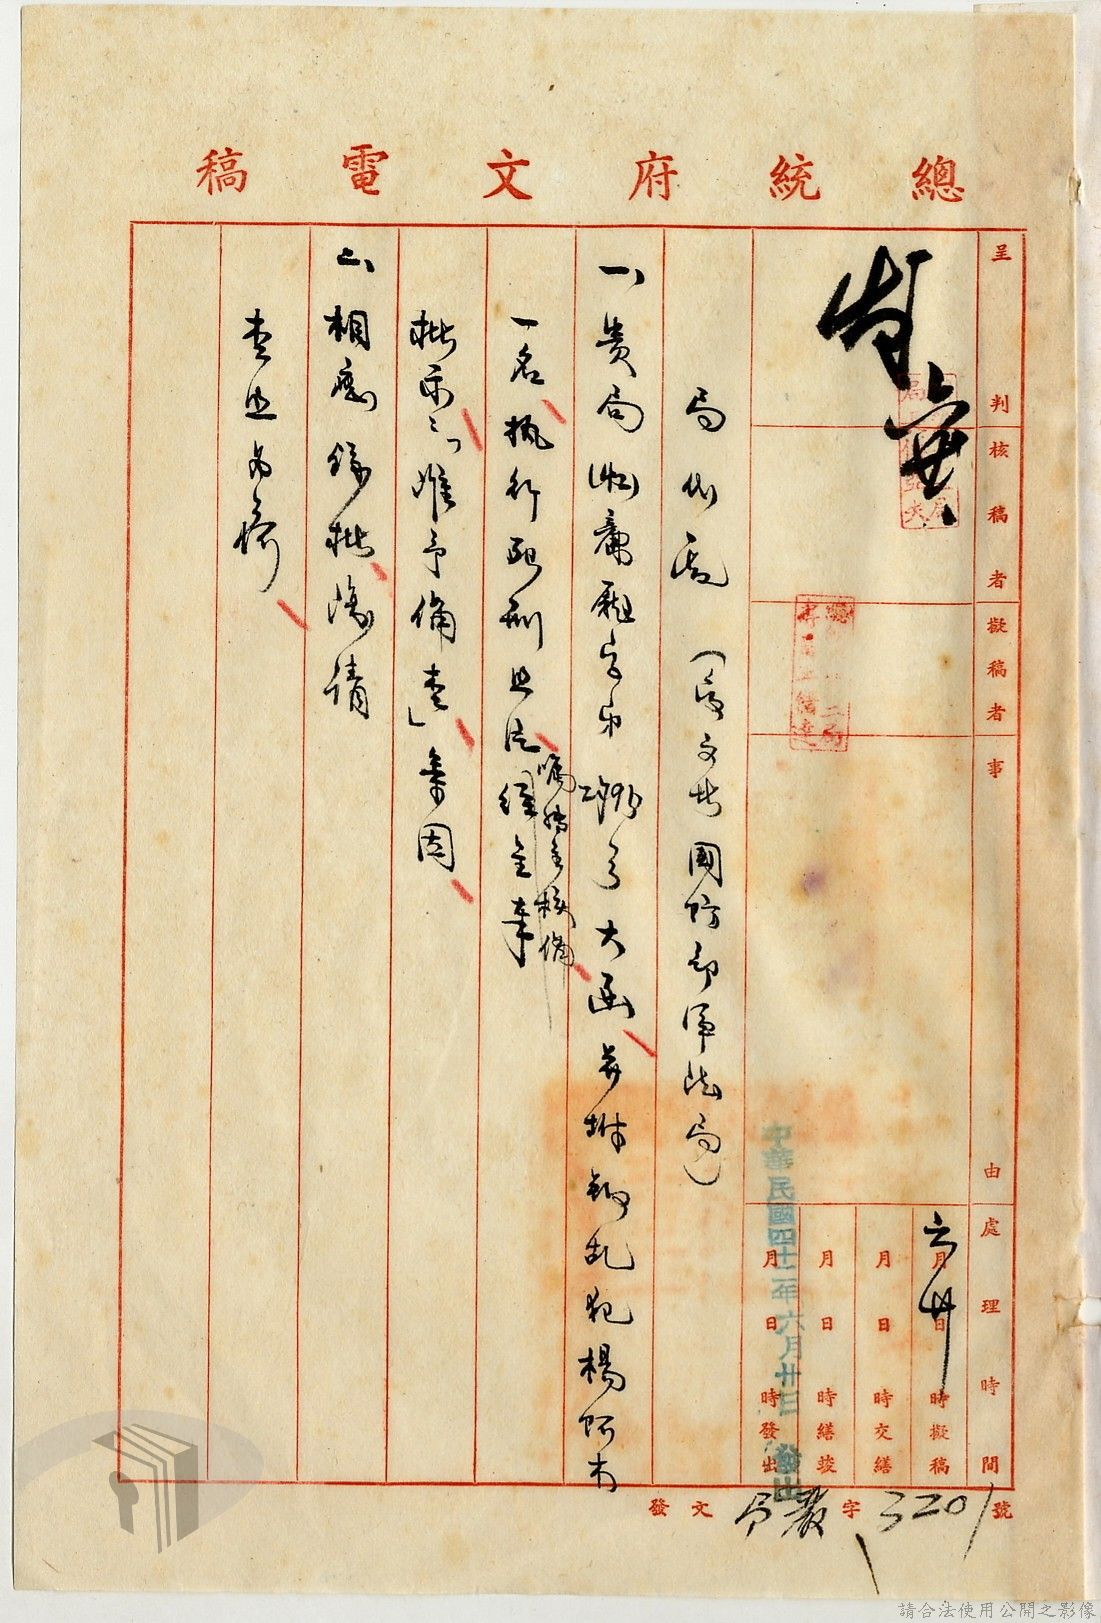 總統府文電稿
呈判
核稿者
擬稿者
事由
處理時間
六月廿日時擬稿
月日時交繕
月日時繕竣
月日時發出
中華民國四十二年六月廿日發出
局代電（受文者國防部軍法局）
一、貴局
字第
號大函并附叛亂犯楊阿木
一名執行死刑照片
囑轉呈核備
經呈奉
批示「准予備查」等因
二、相應錄批復請
查照為荷
發文
字3201號
請合法使用公開之影像